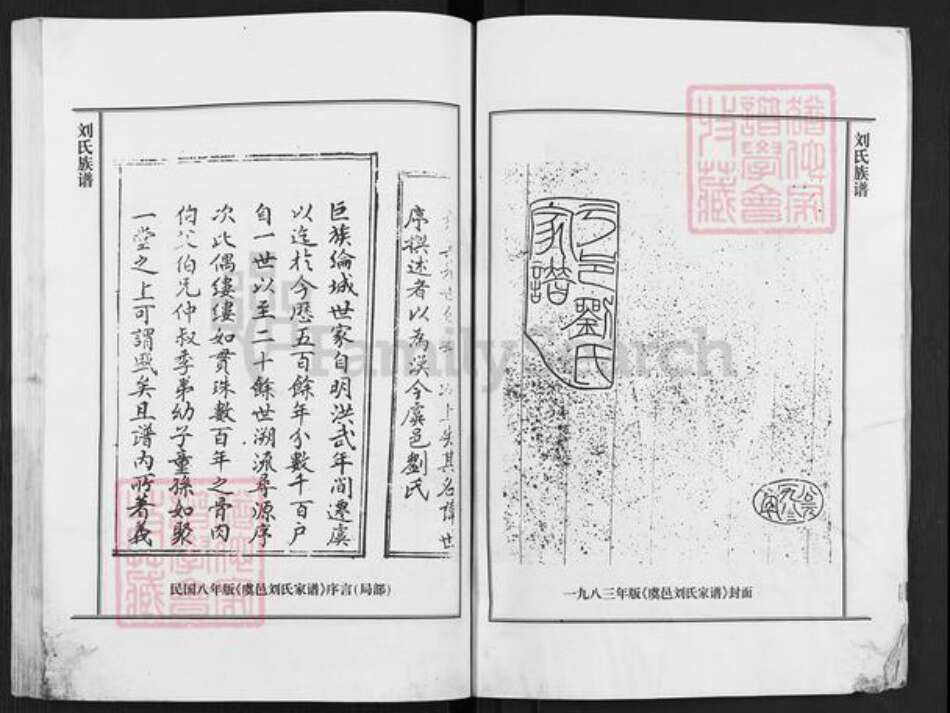 刘氏族谱
虞邑劉氏
家譜
公元
一九八三
年
一九八三年版《虞邑刘氏家谱》封面
序撰述者以為誤今虞邑劉氏
巨族綸城世家自明洪武年間遷虞
以迄於今歷五百餘年分數千百户
自一世以至二十餘世溯流尋源序
次此偶縷縷如貫珠數百年之骨肉
伯父伯兄仲叔季弟幼子童孫如聚
一堂之上可謂熙矣且譜内所著義
民国八年版《虞邑刘氏家谱》序言(局部)
刘氏族谱
FamilySearch